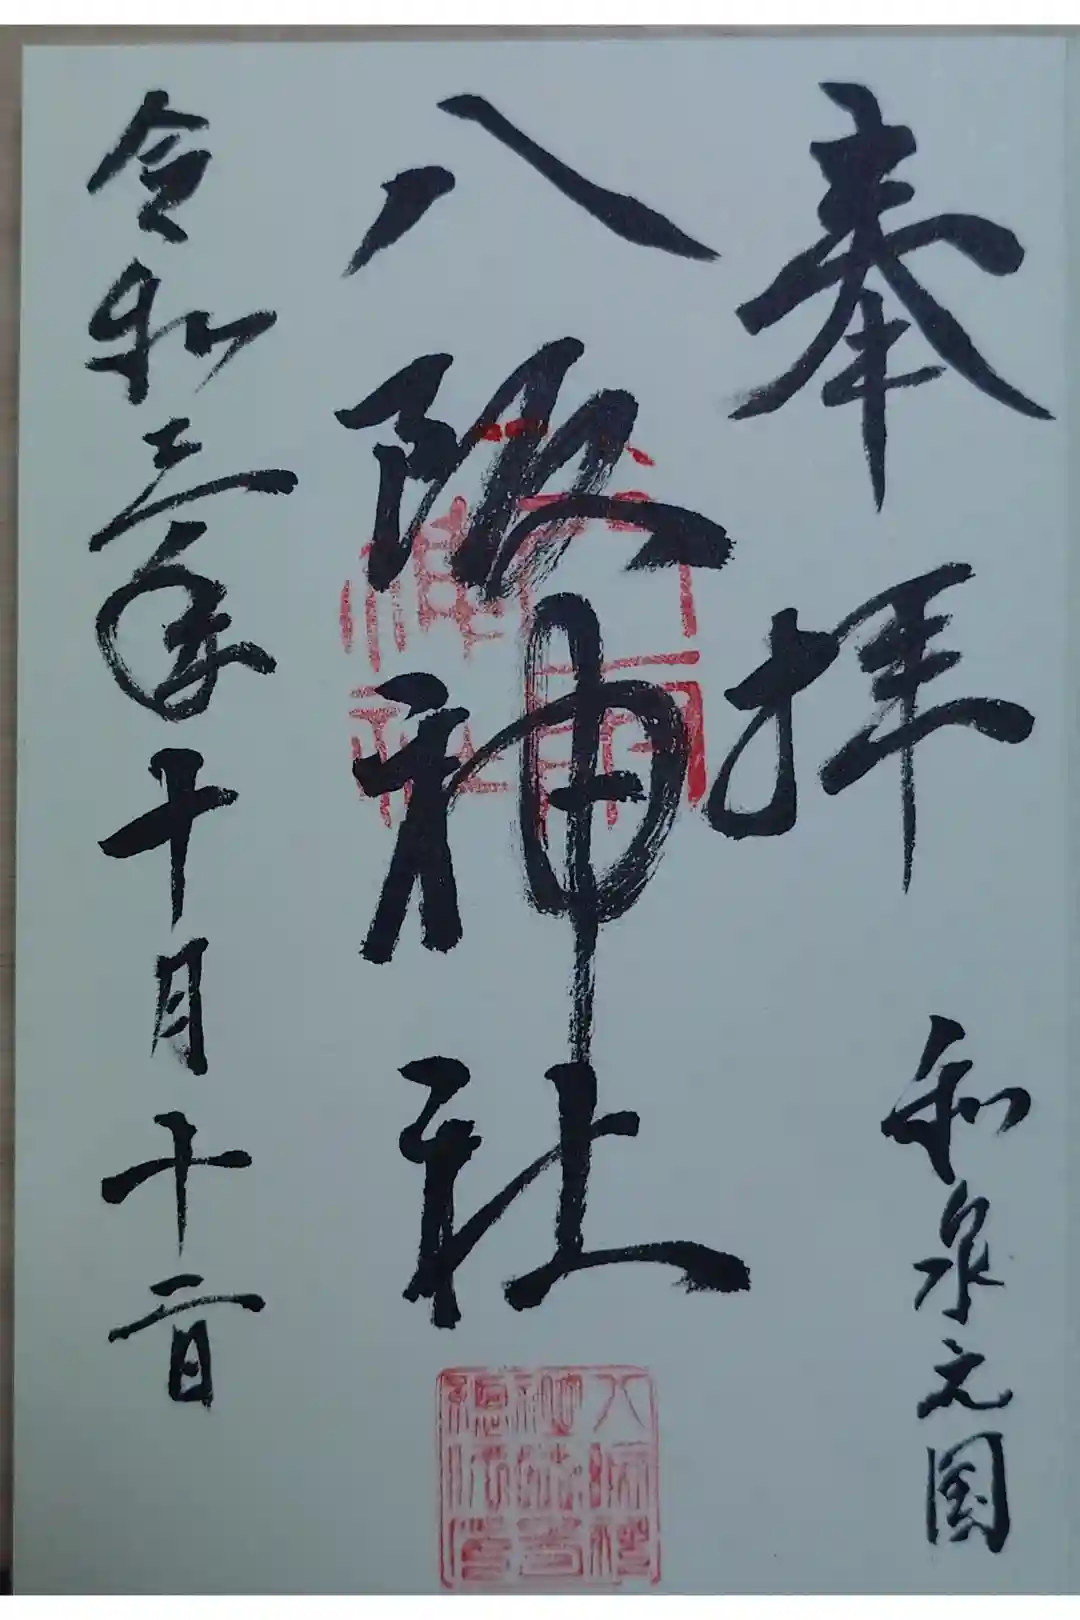 奉拝
和泉元国
八阪神社
令和三年十月十二日